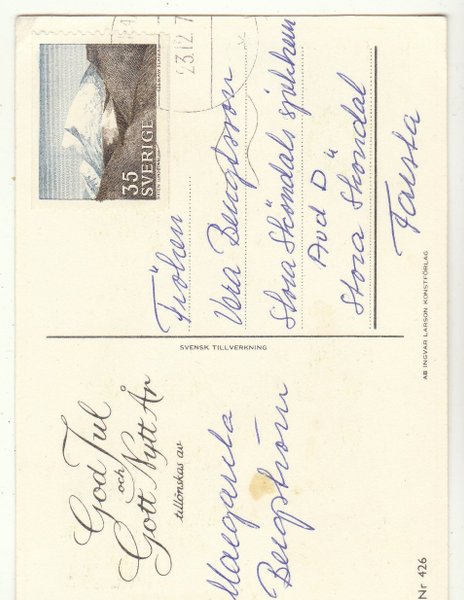 God Jul
och
Gott Nytt År
tillönskas av
Margareta
Bergström
Nr 426
SVENSK TILLVERKNING
35
SVERIGE
23.12.7
Fröken
Vera Bengtsson
Stora Sköndals sjukhem
Avd D ü
Stora Sköndal
Farsta
AB INGVAR LARSON KONSTFÖRLAG